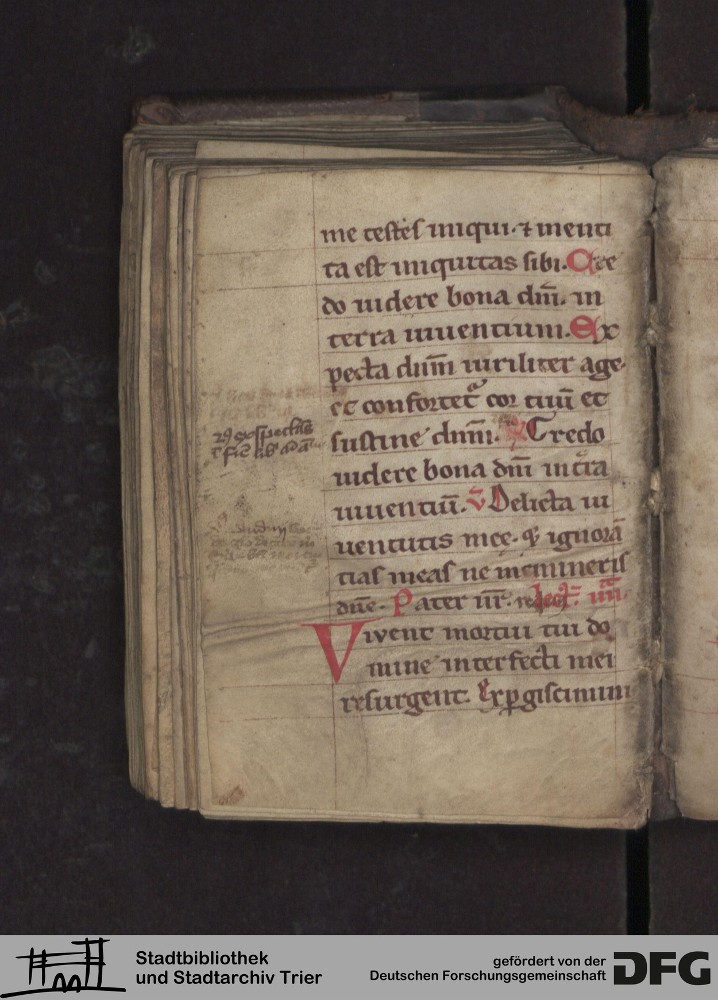 me testes iniqui · ⁊ menti
ta est iniquitas sibi. Cre
do uidere bona dñi. in
terra uiuentium. Ex
pecta dnm̄ uiriliter age·
et confortet᷑ cor tuū et
sustine dnm̄. Credo
uidere bona dm̄ in t̄ra
uiuentiū. V Delicta iu
uentutis meę. ⁊ ignorā
tias meas ne memineris
dñe. Pater nr̄. Lect̄. iiii.
Viuent mortui tui do
mine interfecti mei
resurgent. Exꝑgiscimini
Stadtbibliothek
und Stadtarchiv Trier
gefördert von der
Deutschen Forschungsgemeinschaft
DFG